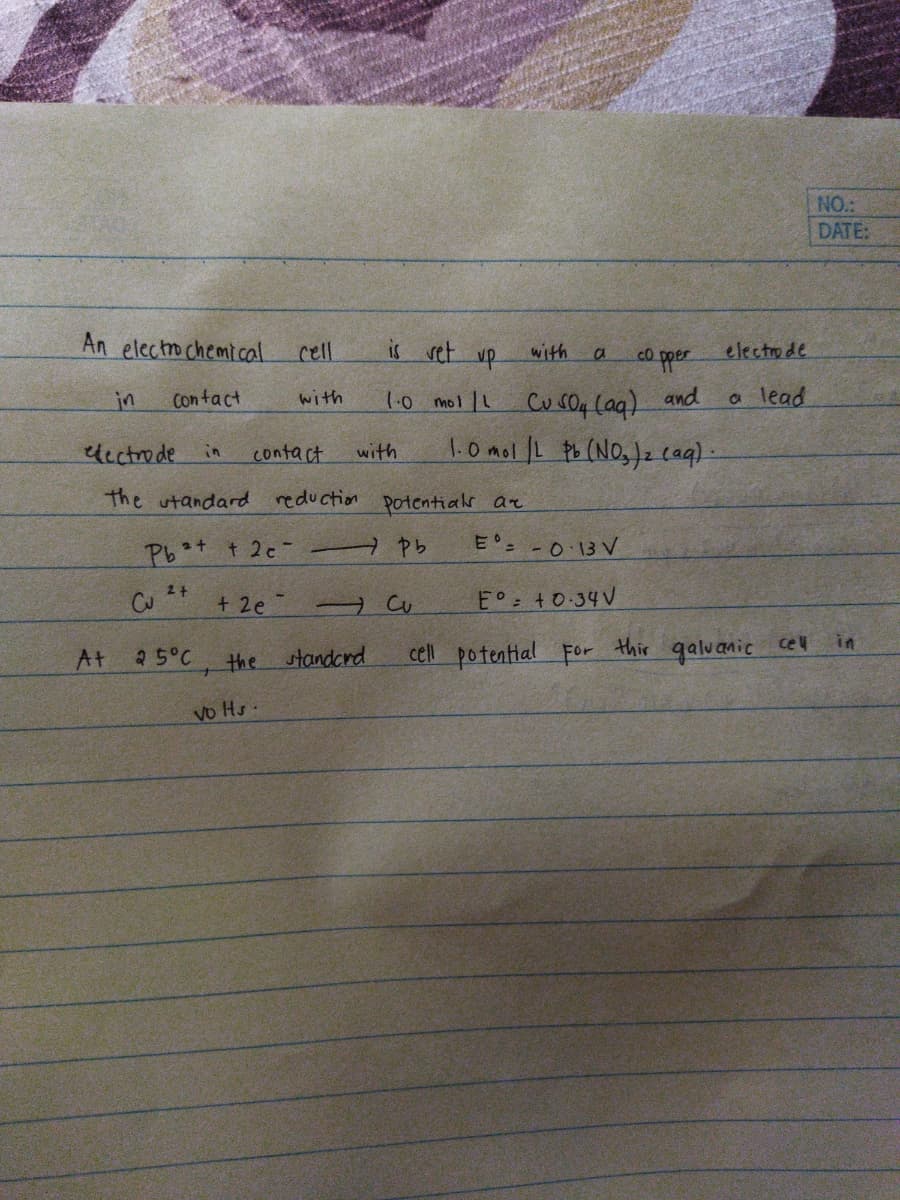 NO.:
DATE:
An electrochemical cell is set up with a copper electrode
in contact with 1.0 mol/L CuSO₄ (aq) and a lead
electrode in contact with 1.0 mol/L Pb(NO₃)₂ (aq).
The standard reduction potentials are
Pb²⁺ + 2e⁻ ⟶ Pb E° = -0.13 V
Cu²⁺ + 2e⁻ ⟶ Cu E° = +0.34V
At 25°C, the standard cell potential For this galvanic cell in
volts.